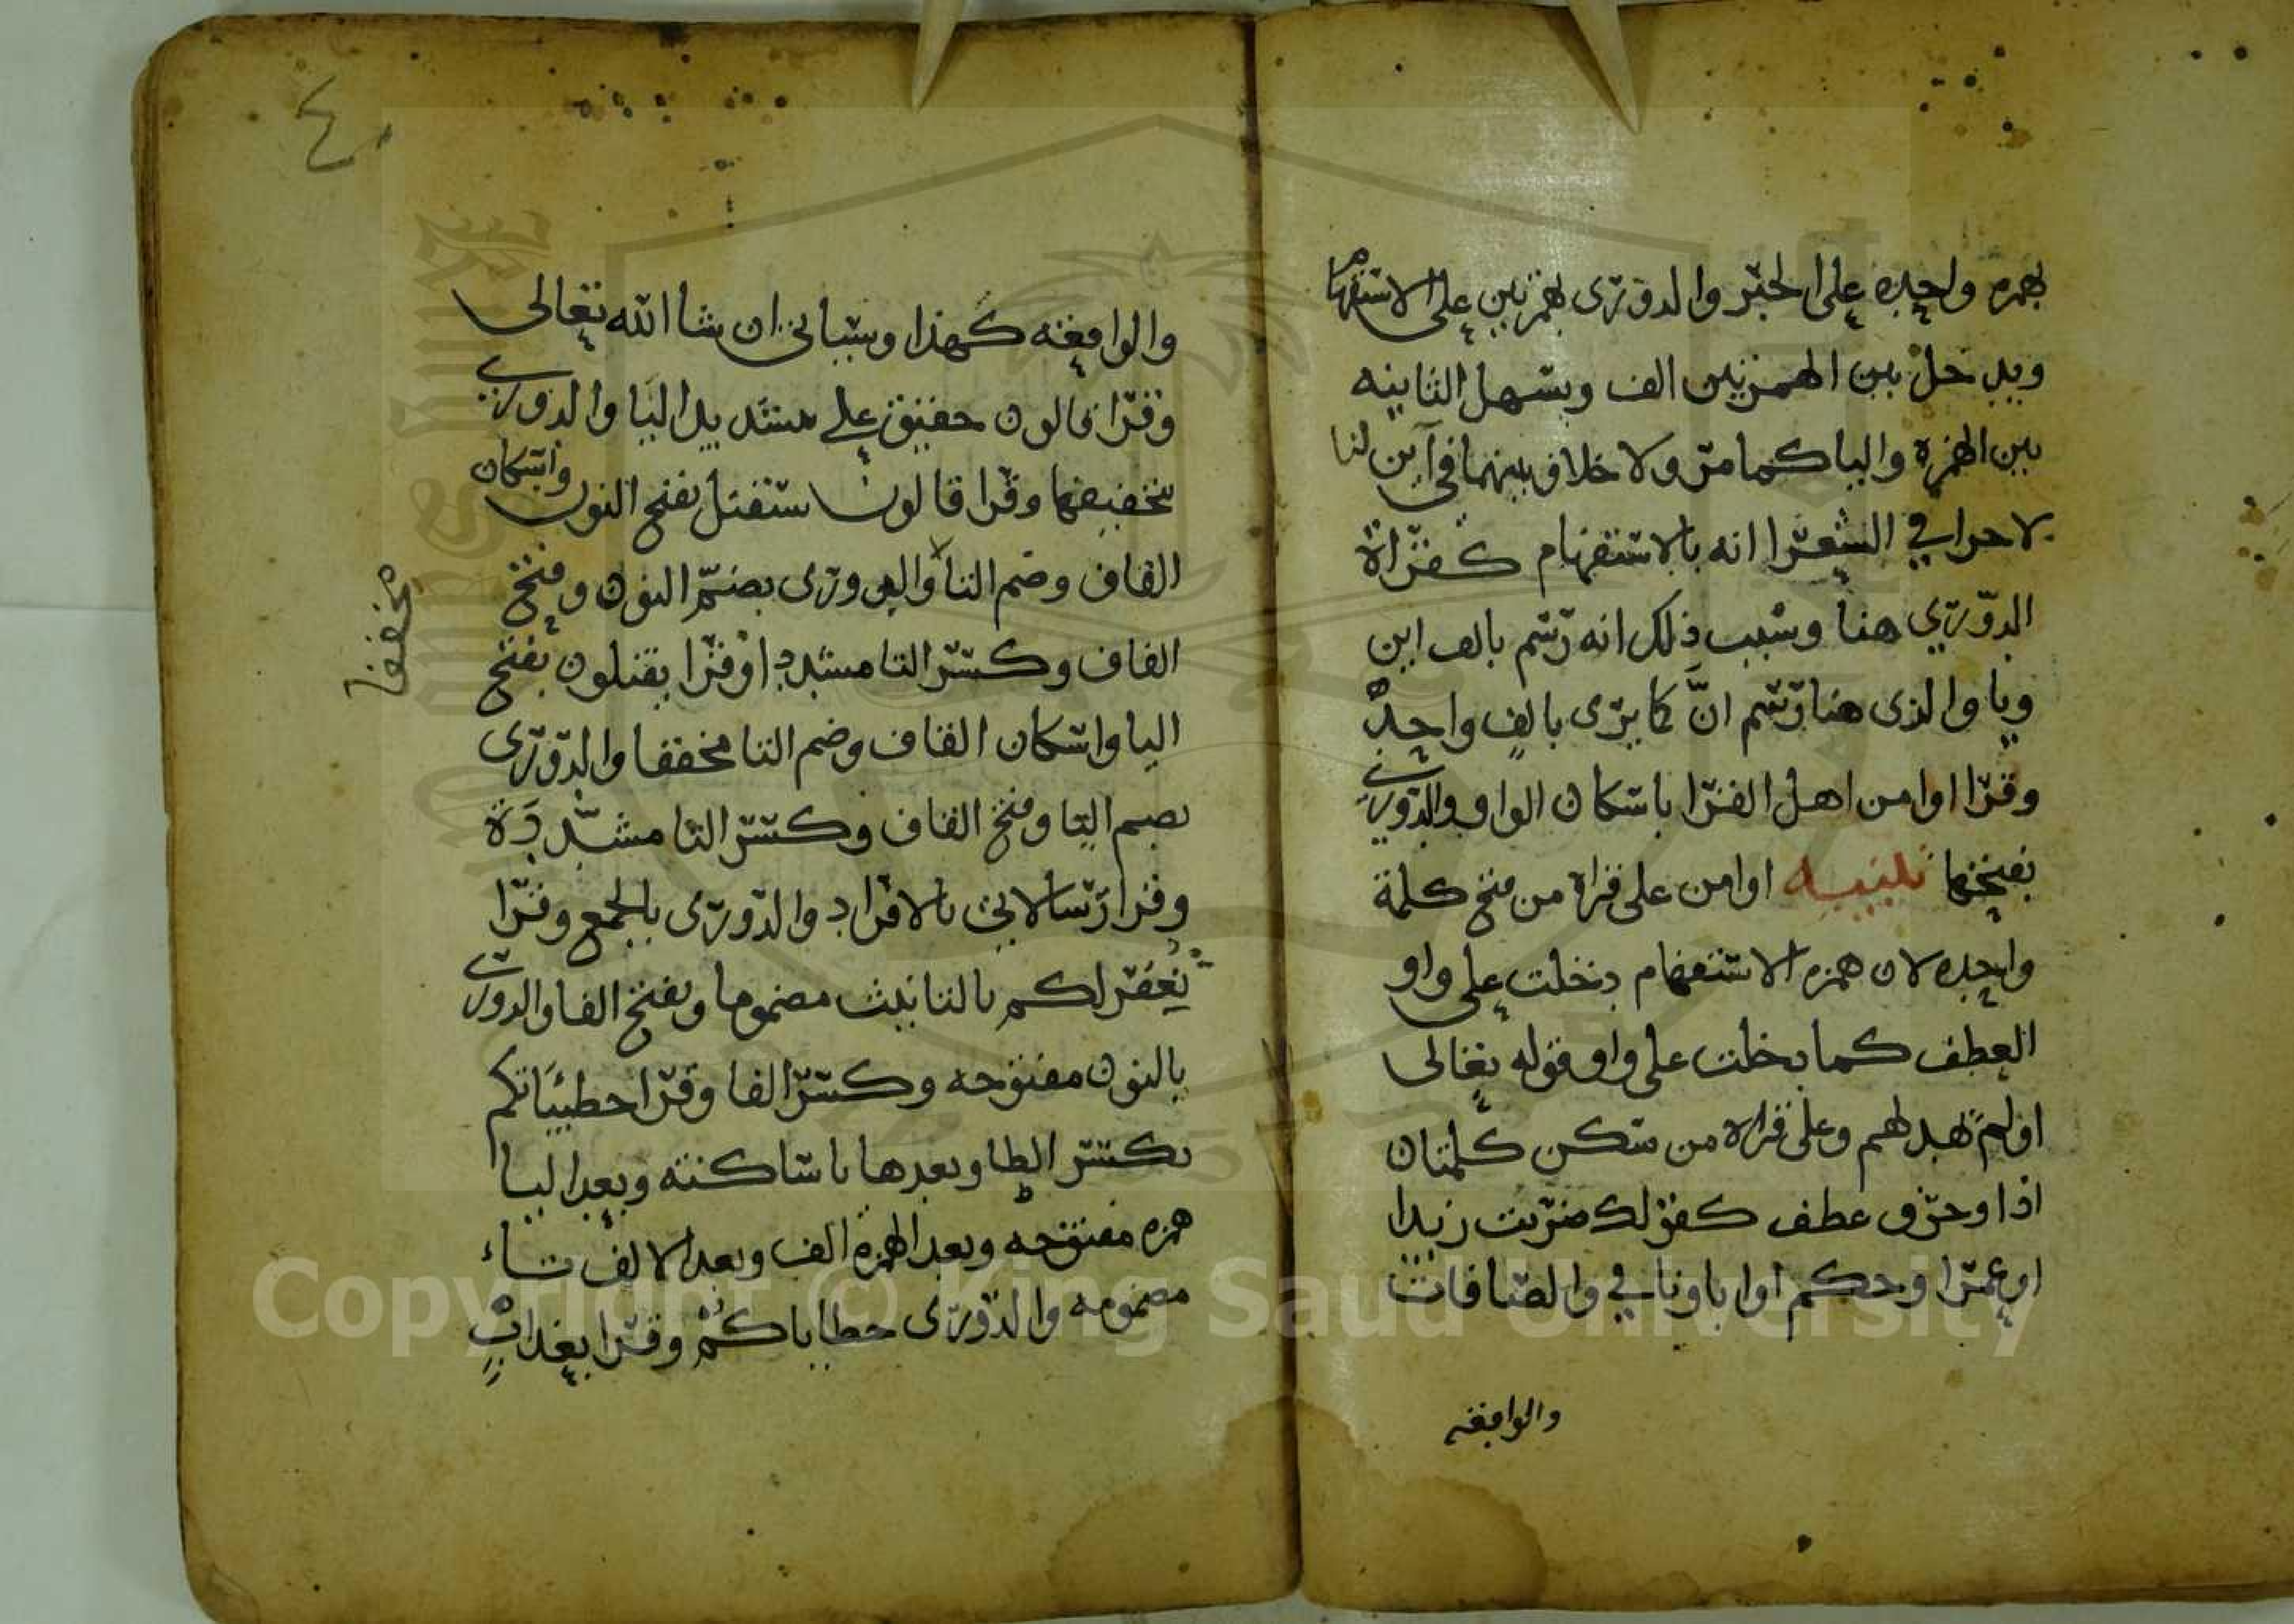 بهمزه واحده على الخبر والدوري بهمزتين على الاستفهام
ويدخل بين الهمزتين الف ويسهل الثانيه
بين الهمزة واليا كما مر ولا خلاف بينهما في آين لنا
لاجرا في الشعرا انه بالاستفهام كقراة
الدوري هنا وسبب ذلك انه رسم بالف اين
ويا والذي هنا رسم انَّ كما يرى بالف واحدة
وقرا اوامن اهل القرا باسكان الواو والدوري
بفتحها تنبيه اوامن على قراة من فتح كلمة
واحده لان همزه الاستفهام دخلت على واو
العطف كما دخلت على واو قوله تعالى
اولم يهد لهم وعلى قراه من سكن كلمتان
اذا وحرف عطف كقولك ضربت زيدا
او عمرا وحكم اوا باونا في والصافات
والواقعه
٤
والواقعه كهذا وسياتي ان شا الله تعالى
وقرا قالون حقيق على بتشديد اليا والدوري
بتخفيفها وقرا قالون سنقتل بفتح النون واسكان
القاف وضم التا والدوري بضم النون وفتح
القاف وكسر التا مشددا وقرا يقتلون بفتح
اليا واسكان القاف وضم التا مخففا والدوري
بضم اليا وفتح القاف وكسر التا مشددة
وقرا رسالاتي بالافراد والدوري بالجمع وقرا
تُغفر لكم بالتانيث مضموما وبفتح الفا والدوري
بالنون مفتوحه وكسر الفا وقرا خطيئاتكم
بكسر الطا وبعدها يا ساكنه وبعد اليا
همزه مفتوحه وبعد الهمزة الف وبعد الالف تاء
مضمومه والدوري خطاياكم وقرا بعذاب
مخففا
Copyright © King Saud University